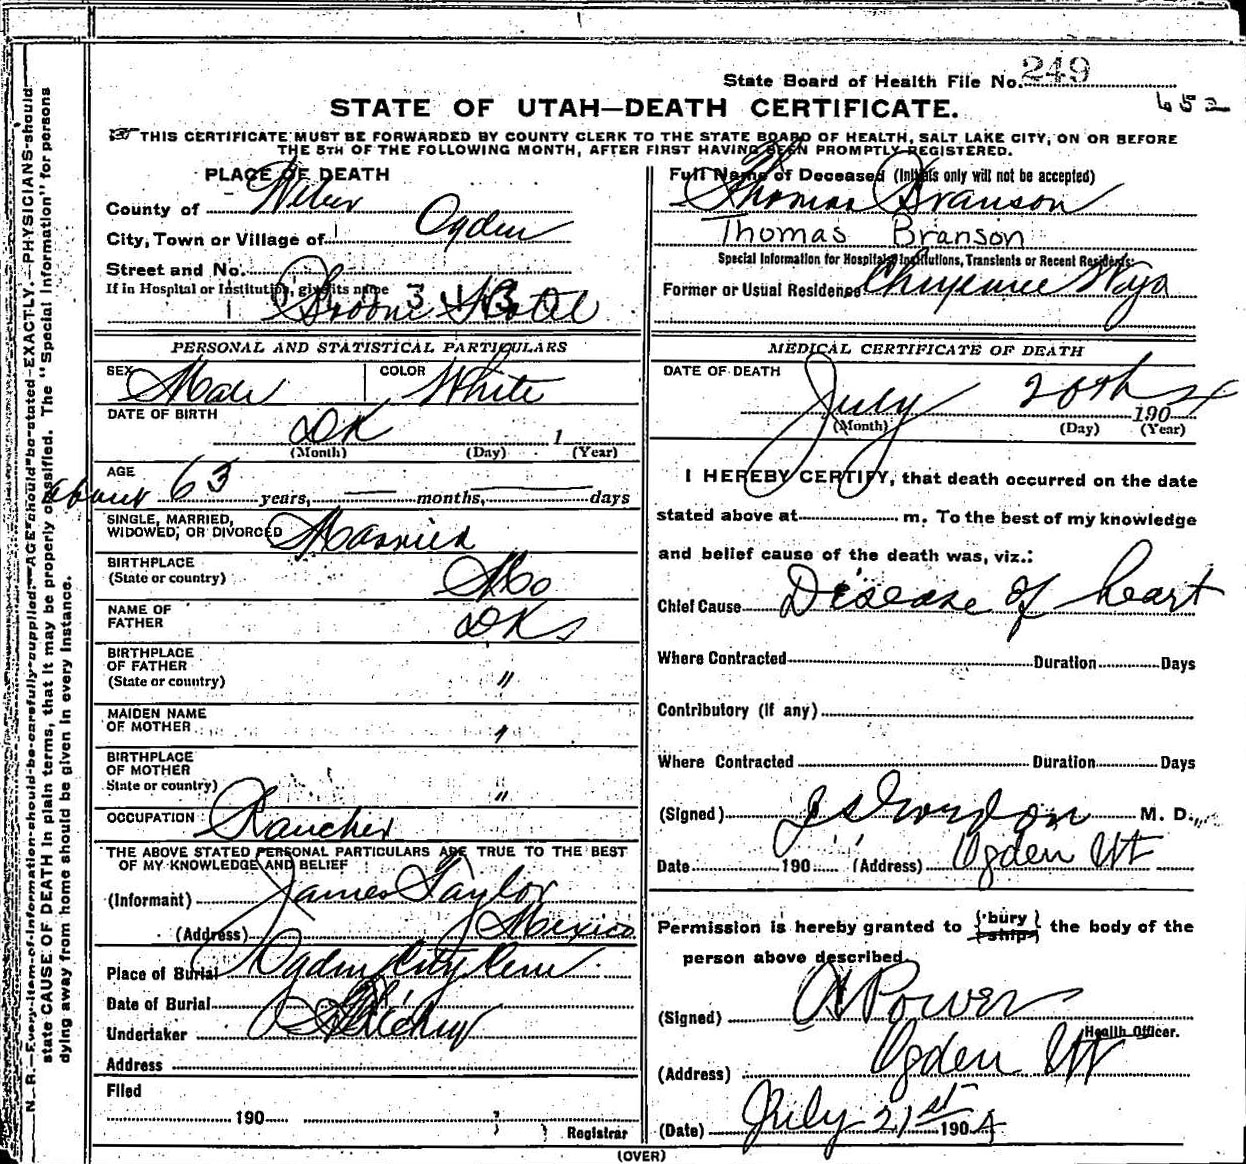 State Board of Health File No. 249
652
STATE OF UTAH—DEATH CERTIFICATE.
☞ THIS CERTIFICATE MUST BE FORWARDED BY COUNTY CLERK TO THE STATE BOARD OF HEALTH, SALT LAKE CITY, ON OR BEFORE
THE 5TH OF THE FOLLOWING MONTH, AFTER FIRST HAVING BEEN PROMPTLY REGISTERED.
N. B.—Every item of information should be carefully supplied. AGE should be stated EXACTLY. PHYSICIANS should
state CAUSE OF DEATH in plain terms, that it may be properly classified. The "Special Information" for persons
dying away from home should be given in every instance.
PLACE OF DEATH
County of Weber
City, Town or Village of Ogden
Street and No.
If in Hospital or Institution, give its name
Broom Hotel
PERSONAL AND STATISTICAL PARTICULARS
SEX Male COLOR White
DATE OF BIRTH DK 1
(Month) (Day) (Year)
AGE
about 63 years, — months, — days
SINGLE, MARRIED,
WIDOWED, OR DIVORCED Married
BIRTHPLACE
(State or country) Mo
NAME OF
FATHER DK
BIRTHPLACE
OF FATHER
(State or country) "
MAIDEN NAME
OF MOTHER "
BIRTHPLACE
OF MOTHER
State or country) "
OCCUPATION Rancher
THE ABOVE STATED PERSONAL PARTICULARS ARE TRUE TO THE BEST
OF MY KNOWLEDGE AND BELIEF
(Informant) James Taylor
(Address) Mexico
Place of Burial Ogden City Cem
Date of Burial
Undertaker
Address
Filed
190 Registrar
Full Name of Deceased (Initials only will not be accepted)
Thomas Branson
Thomas Branson
Special Information for Hospitals, Institutions, Transients or Recent Residents:
Former or Usual Residence Cheyenne Wyo
MEDICAL CERTIFICATE OF DEATH
DATE OF DEATH
July 20th 1904
(Month) (Day) (Year)
I HEREBY CERTIFY, that death occurred on the date
stated above at m. To the best of my knowledge
and belief cause of the death was, viz.:
Chief Cause Disease of heart
Where Contracted Duration Days
Contributory (if any)
Where Contracted Duration Days
(Signed) J S Gordon M. D.
Date 190 (Address) Ogden Ut
Permission is hereby granted to {bury
ship} the body of the
person above described
(Signed) A Power
Health Officer.
(Address) Ogden Ut
(Date) July 21st 1904
(OVER)